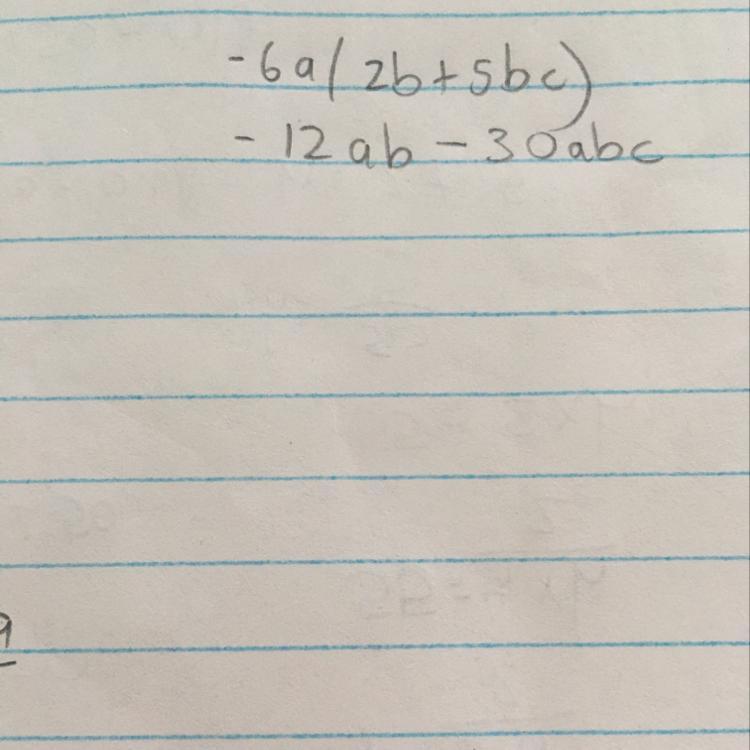 -6a(2b+5bc)
-12ab-30abc